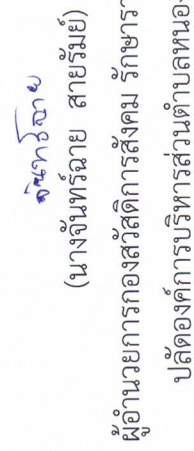 จันทร์ฉาย
(นางจันทร์ฉาย สายรัมย์)
ผู้อำนวยการกองสวัสดิการสังคม รักษารา
ปลัดองค์การบริหารส่วนตำบลหนอง